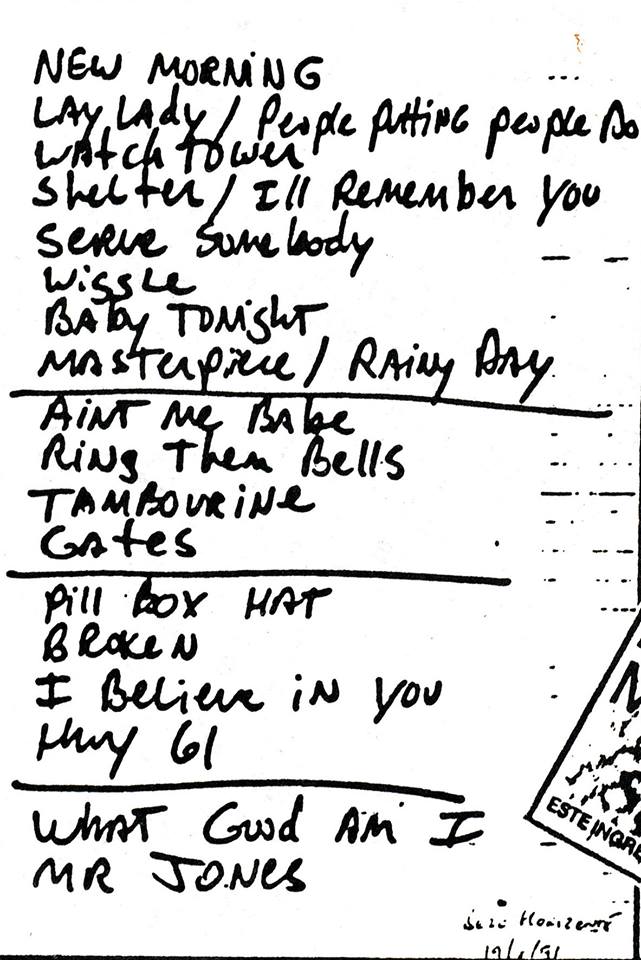 NEW MORNING
LAy LAdy / People putting people Do
WAtch TOWer
Shelter / I'll Remember You
Serve Somebody
Wiggle
BAby TONight
MASterpiece / RAINy DAY
AiNT Me BAbe
RiNg Them Bells
TAMBOURiNe
GAtes
Pill BOX HAT
BROKeN
I Believe iN you
Hwy 61
WHAT Good AM I
MR JONes
ESTE INGRE